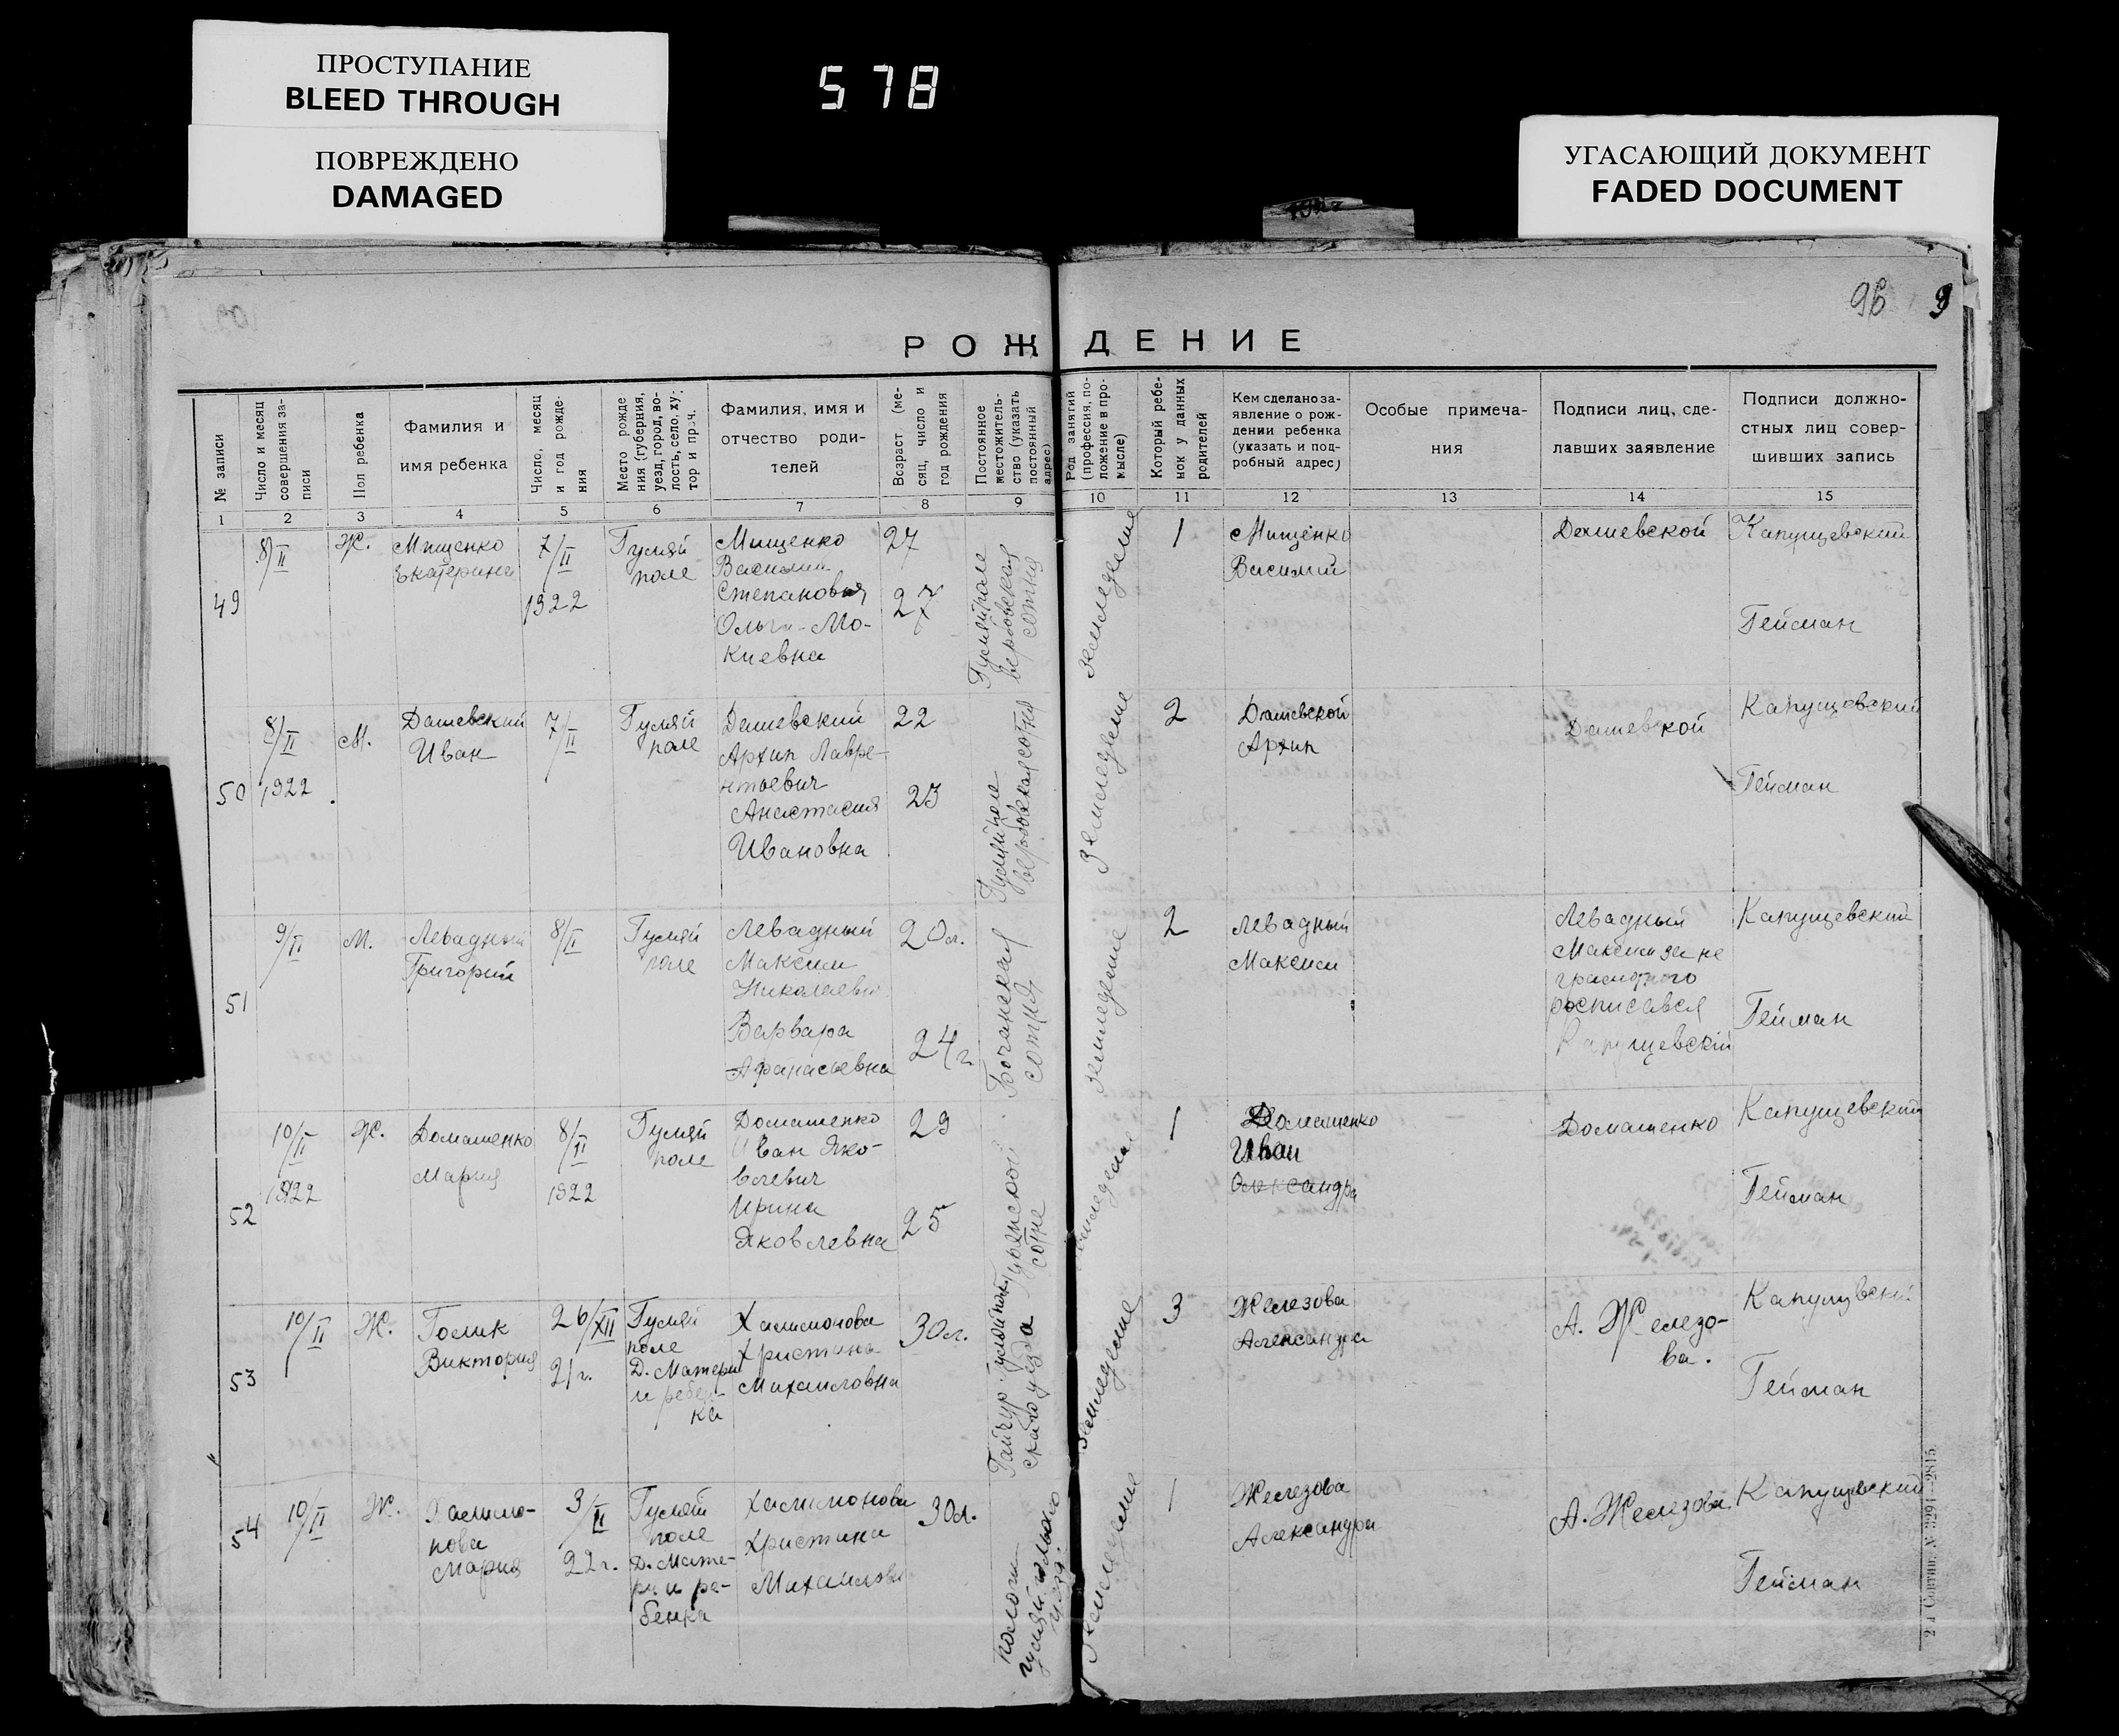 ПРОСТУПАНИЕ
BLEED THROUGH
ПОВРЕЖДЕНО
DAMAGED
578
УГАСАЮЩИЙ ДОКУМЕНТ
FADED DOCUMENT
96
9
РОЖДЕНИЕ
№ записи
Число и месяц
совершения за-
писи
Пол ребенка
Фамилия и
имя ребенка
Число, месяц
и год рожде-
ния
Место рожде
ния (губерния,
уезд, город, во-
лость, село, ху-
тор и проч.
Фамилия, имя и
отчество роди-
телей
Возраст (ме-
сяц, число и
год рождения
Постоянное
местожитель-
ство (указать
постоянный
адрес)
Род занятий
(профессия, по-
ложение в про-
мысле)
Который ребе-
нок у данных
родителей
Кем сделано за-
явление о рож-
дении ребенка
(указать и под-
робный адрес)
Особые примеча-
ния
Подписи лиц, сде-
лавших заявление
Подписи должно-
стных лиц совер-
шивших запись
1 2 3 4 5 6 7 8 9 10 11 12 13 14 15
49
8/II
Ж.
Мищенко
Екатерина
7/II
1922
Гуляй
поле
Мищенко
Василий
Степанович
Ольга-Мо-
киевна
27
27
Гуляйполе
вербовская
сотня
земледелие
1
Мищенко
Василий
Дашевской
Капущевский
Гейман
50
8/II
1922
М.
Дашевский
Иван
7/II
Гуляй
поле
Дашевский
Архип Лавре-
нтьевич
Анастасия
Ивановна
22
23
Гуляйполе
вербовская сотня
Земледелие
2
Дашевской
Архип
Дашевской
Капущевский
Гейман
51
9/II
М.
Левадный
Григорий
8/II
Гуляй
поле
Левадный
Максим
Николаевич
Варвара
Афанасьевна
20л.
24г.
Бочанская
сотня
земледелие
2
Левадный
Максим
Левадный
Максим за не
грамотного
росписався
Капущевскій
Капущевский
Гейман
52
10/II
1922
Ж.
Домашенко
Мария
8/II
1922
Гуляй
поле
Домашенко
Иван Яко-
влевич
Ирина
Яковлевна
29
25
сотне
земледелие
1
Домашенко
Иван
Александра
Домашенко
Капущевский
Гейман
53
10/II
Ж.
Голик
Виктория
26/XII
21г.
Гуляй
поле
Д. Матери
и ребен-
ка
Халимонова
Христина
Михайловна
30л.
Гайчур
ского уезда
земледелие
3
Железова
Александра
А. Железо-
ва.
Капущевский
Гейман
54
10/II
Ж.
Халимо-
нова
Мария
3/II
22г.
Гуляй
поле
Д. Мате-
ри и ре-
бенка
Халимонова
Христина
Михайловна
30л.
земледелие
1
Железова
Александра
А. Железова
Капущевский
Гейман